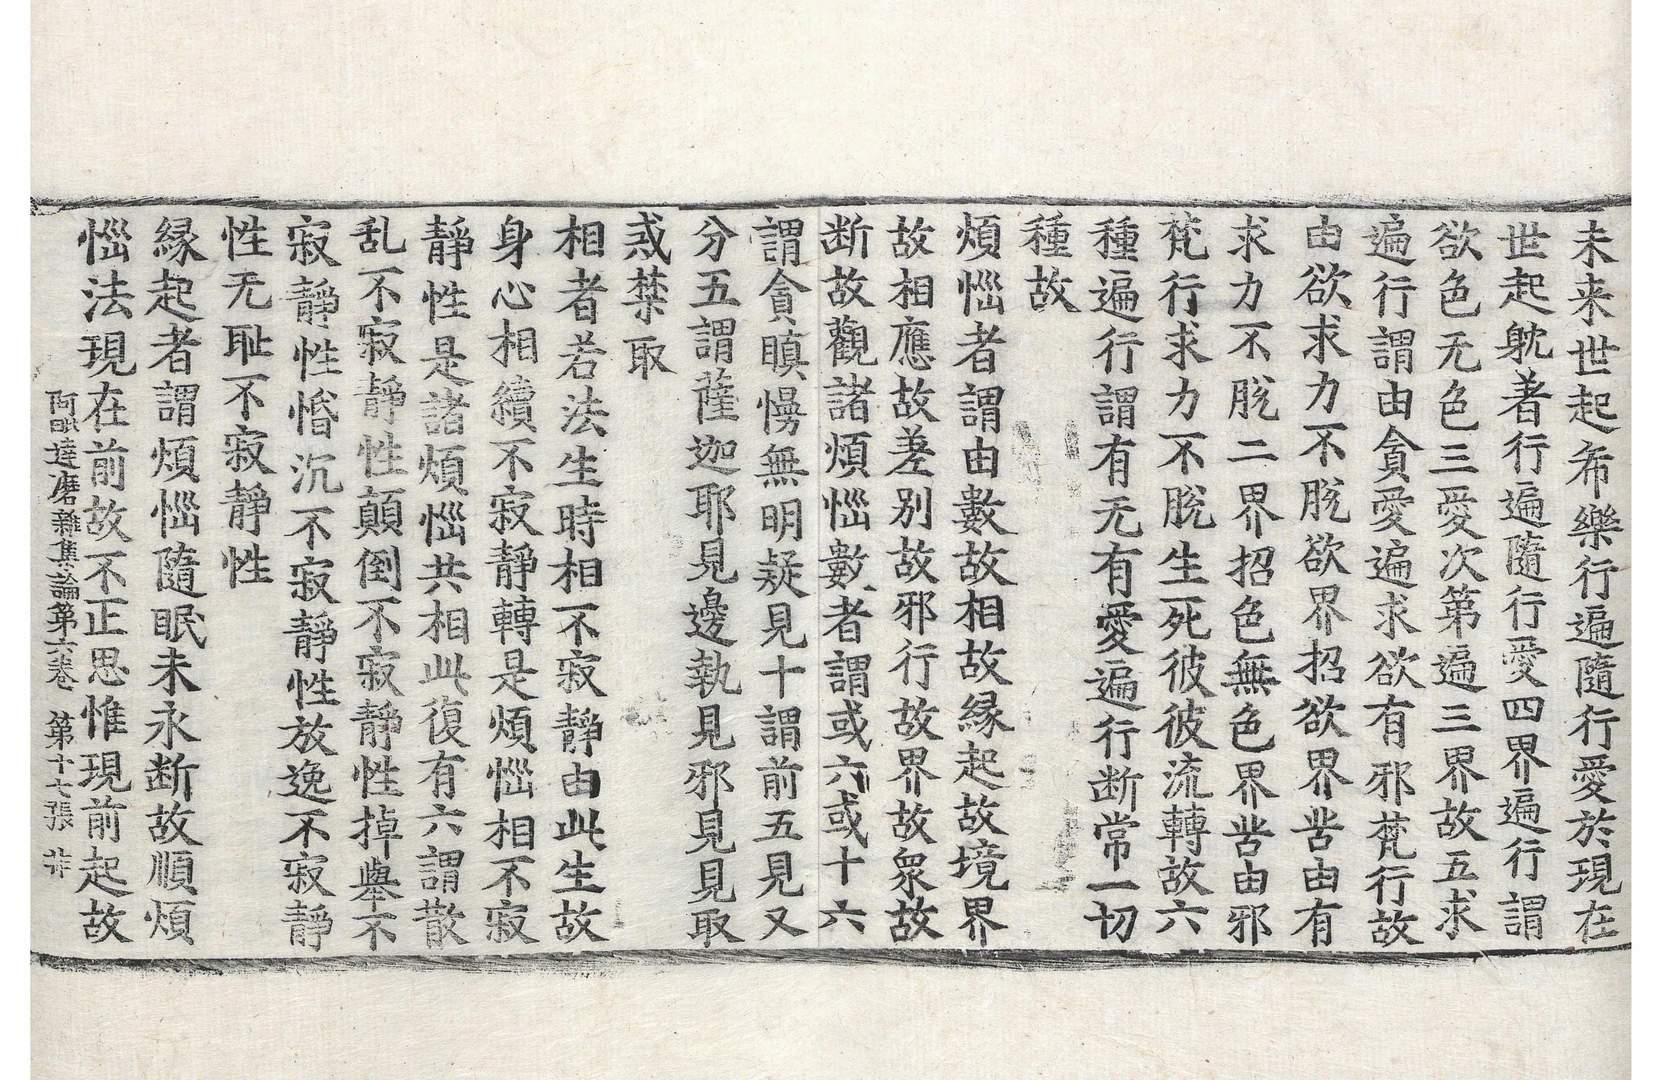 未来世起希樂行遍隨行愛於現在
世起躭著行遍隨行愛四界遍行謂
欲色无色三愛次第遍三界故五求
遍行謂由貪愛遍求欲有邪梵行故
由欲求力不脫欲界招欲界苦由有
求力不脫二界招色無色界苦由邪
梵行求力不脫生死彼彼流轉故六
種遍行謂有无有愛遍行断常一切
種故
煩惱者謂由數故相故緣起故境界
故相應故差別故邪行故界故衆故
断故觀諸煩惱數者謂或六或十六
謂貪瞋慢無明疑見十謂前五見又
分五謂薩迦耶見邊執見邪見見取
戒禁取
相者若法生時相不寂靜由此生故
身心相續不寂靜轉是煩惱相不寂
靜性是諸煩惱共相此復有六謂散
乱不寂靜性顛倒不寂靜性掉舉不
寂靜性惛沉不寂靜性放逸不寂靜
性无耻不寂靜性
緣起者謂煩惱隨眠未永断故順煩
惱法現在前故不正思惟現前起故
阿毗達磨雜集論第六卷 第十七張 非